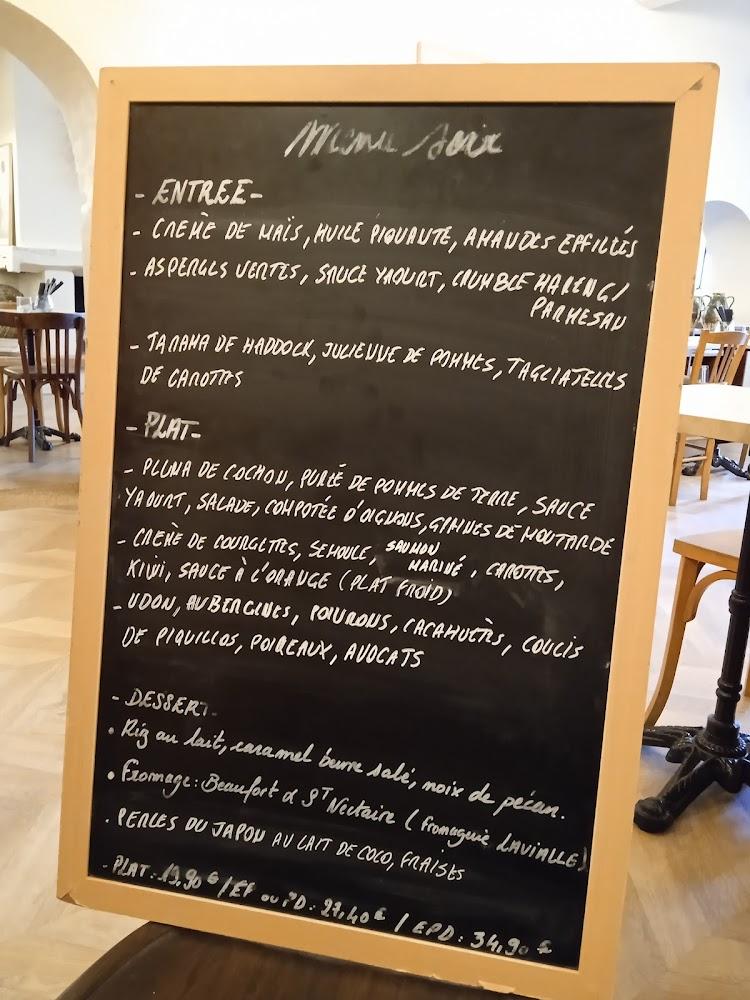 Menu soir
- ENTREE -
- CREME DE MAÏS, HUILE PIQUANTE, AMANDES EFFILÉS
- ASPERGES VERTES, SAUCE YAOURT, CRUMBLE HARENG /
PARMESAN
- TARAMA DE HADDOCK, JULIENNE DE POMMES, TAGLIATELLES
DE CAROTTES
- PLAT -
- PLUMA DE COCHON, PURÉE DE POMMES DE TERRE, SAUCE
YAOURT, SALADE, COMPOTÉE D'OIGNONS, GRAINES DE MOUTARDE
- CREME DE COURGETTES, SEMOULE, SAUMON MARINÉ, CAROTTES,
KIWI, SAUCE À L'ORANGE (PLAT FROID)
- UDON, AUBERGINES, POIVRONS, CACAHUÈTES, COULIS
DE PIQUILLOS, POIREAUX, AVOCATS
- DESSERT -
• Riz au lait, caramel beurre salé, noix de pécan.
• Fromage : Beaufort & ST Nectaire (fromagerie LAVIALLE)
• PERLES DU JAPON AU LAIT DE COCO, FRAISES
- PLAT : 19,90 € / EP ou PD : 27,40 € / EPD : 34,90 €